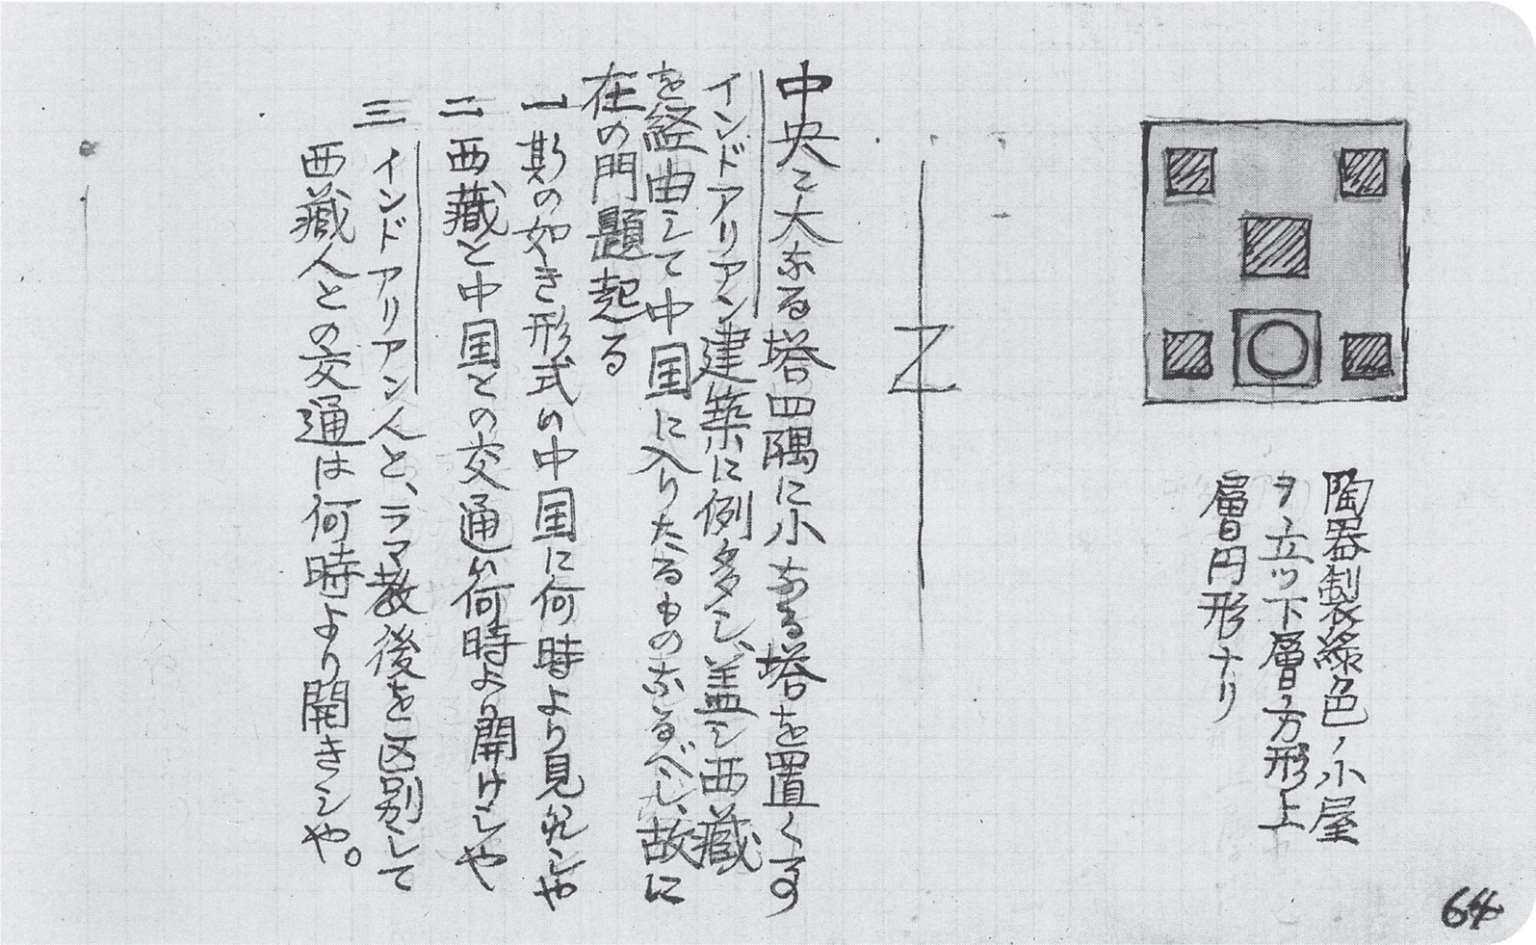 陶器製緑色ノ小屋
ヲ立ツ下層ハ方形上
層円形ナリ
中央ニ大なる塔四隅に小なる塔を置くる
インドアリアン建築に例多シ、蓋シ西藏
を経由して中国に入りたるものなるべし、故に
在の門題起る
一 斯の如き形式ハ中国に何時より見えしや
二 西藏と中国との交通ハ何時より開けしや
三 インドアリアン人と、ラマ教後を区別して
西藏人との交通は何時より開きシや。
64